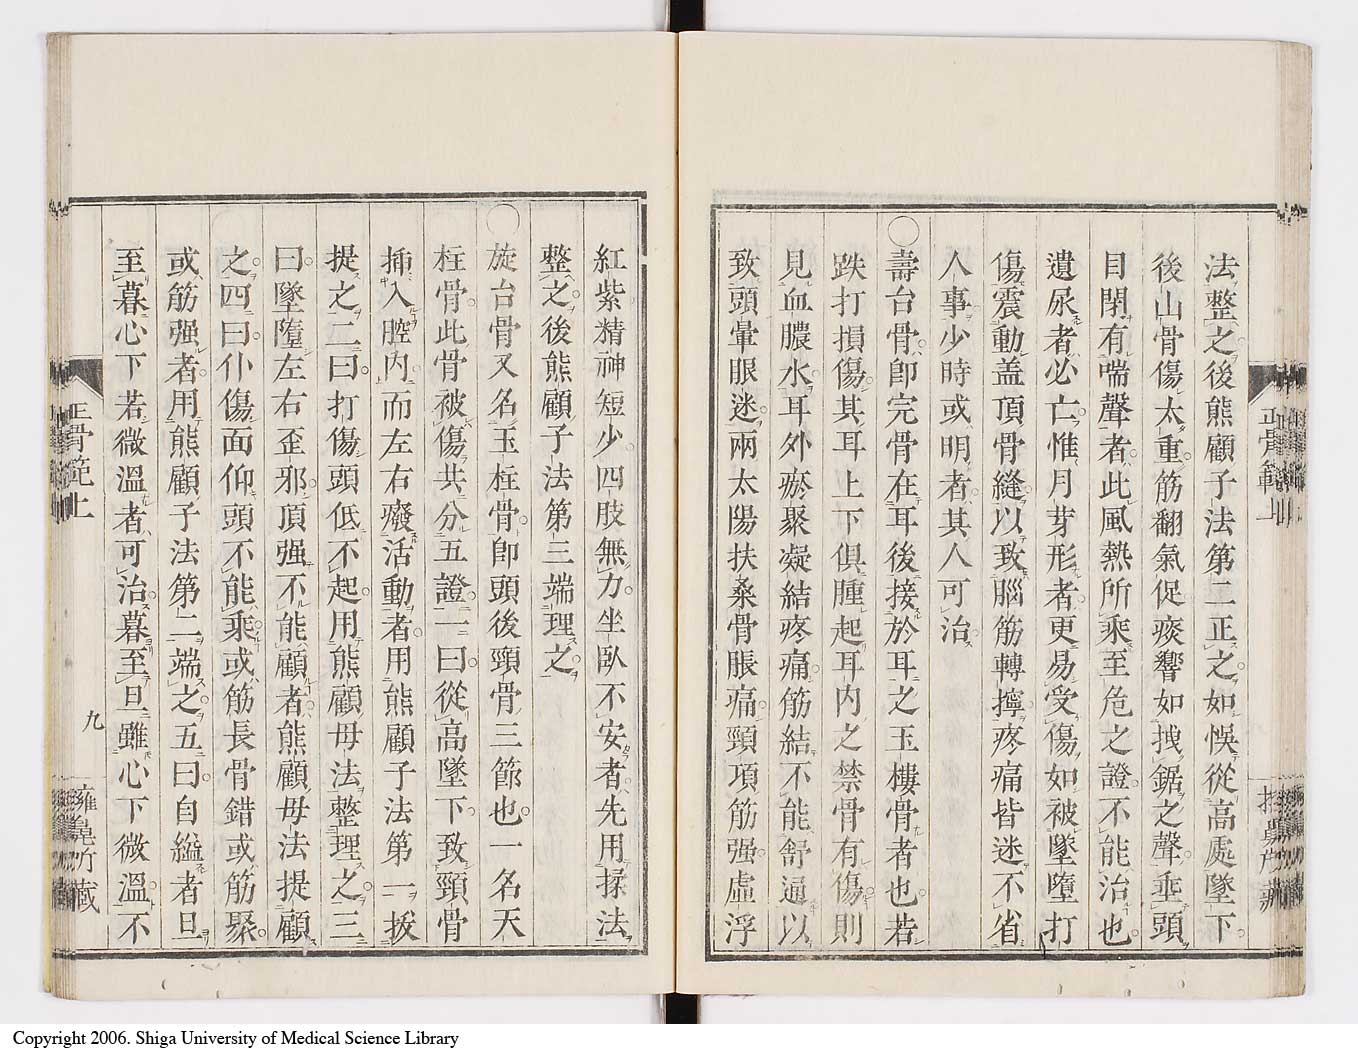 法整之後熊顧子法第二正之如悞從高處墜下
後山骨傷太重筋翻氣促痰響如拽鋸之聲垂頭
目閉有喘聲者此風熱所乘至危之證不能治也
遺尿者必亡惟月芽形者更易受傷如被墜墮打
傷震動盖頂骨縫以致腦筋轉擰疼痛皆迷不省
人事少時或明者其人可治
〇壽台骨卽完骨在耳後接於耳之玉樓骨者也若
跌打損傷其耳上下俱腫起耳內之禁骨有傷則
見血膿水耳外瘀聚凝結疼痛筋結不能舒通以
致頭暈眼迷兩太陽扶桑骨脹痛頸項筋强虛浮
紅紫精神短少四肢無力坐臥不安者先用揉法
整之後熊顧子法第三端理之
〇旋台骨又名玉柱骨卽頭後頸骨三節也一名天
柱骨此骨被傷共分五證一曰從高墜下致頸骨
揷入腔內而左右癈活動者用熊顧子法第一拔
提之二曰打傷頭低不起用熊顧母法整理之三
曰墜墮左右歪邪頂强不能顧者熊顧母法提顧
之四曰仆傷面仰頭不能乘或筋長骨錯或筋聚
或筋强者用熊顧子法第二端之五曰自縊者旦
至暮心下若微溫者可治暮至旦雖心下微溫不
正骨範上
九
正骨範上
Copyright 2006. Shiga University of Medical Science Library